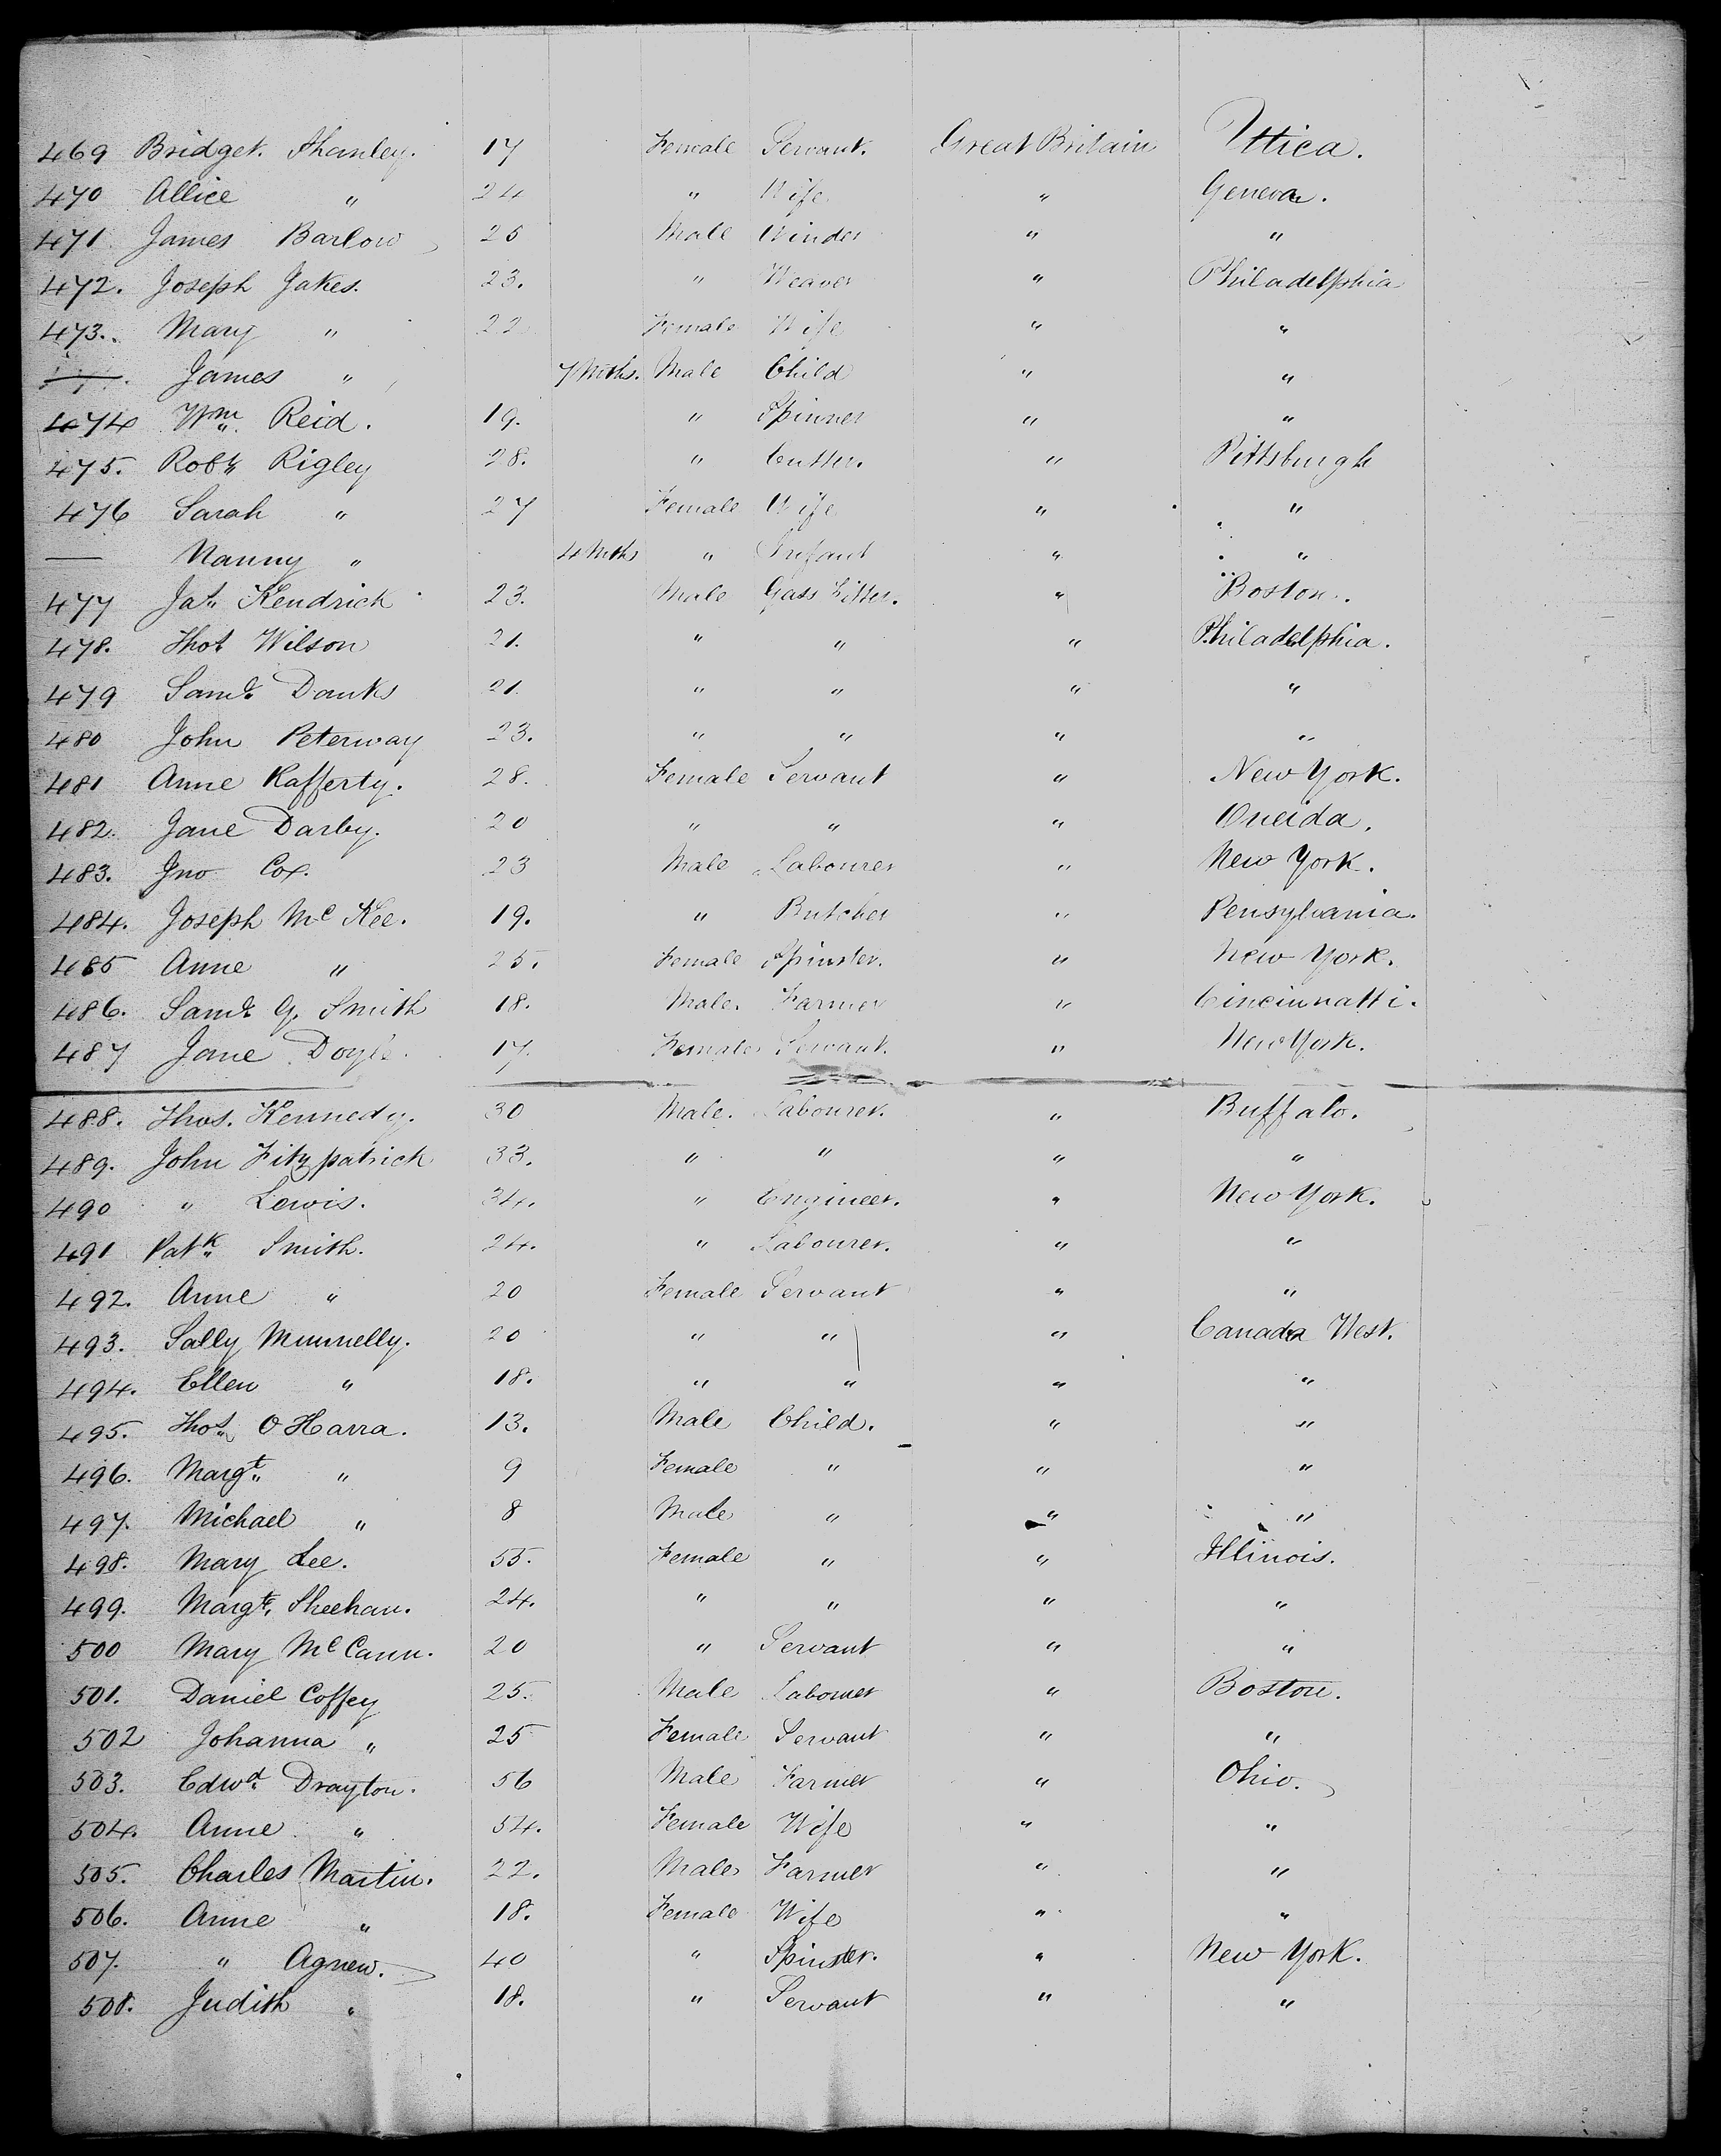 469 Bridget. Shanley. 17 Female Servant. Great Britain Uttica.
470 Allice " 24 " Wife " Geneva.
471 James Barlow 25 Male Winder " "
472. Joseph Jakes. 23. " Weaver " Philadelphia
473. Mary " 22 Female Wife " "
James " 7 Mths. Male Child " "
474 Wm. Reid. 19. " Spinner " "
475. Robt. Rigley 28. " Cutter. " Pittsburgh
476 Sarah " 27 Female Wife " "
— Nanny " 4 Mths " Infant " "
477 Jas. Kendrick 23. Male Gass Fitter. " Boston.
478. Thos Wilson 21. " " " Philadelphia.
479 Saml. Danks 21. " " " "
480 John Peterway 23. " " " "
481 Anne Rafferty. 28. Female Servant " New York.
482. Jane Darby. 20 " " " Oneida.
483. Jno Cox. 23 Male Labourer " New York.
484. Joseph Mc Kee. 19. " Butcher " Pensylvania.
485 Anne " 25. Female Spinster. " New York.
486. Saml. G. Smith 18. Male. Farmer " Cincinnatti.
487 Jane Doyle. 17. Female Servant. " New York.
488. Thos. Kennedy. 30 Male. Labourer. " Buffalo.
489. John Fitzpatrick 33. " " " "
490 " Lewis. 34. " Engineer. " New York.
491 Patk. Smith. 24. " Labourer. " "
492. Anne " 20 Female Servant " "
493. Sally Munnelly. 20 " " " Canada West.
494. Ellen " 18. " " " "
495. Thos. O Harra. 13. Male Child. " "
496. Margt. " 9 Female " " "
497. Michael " 8 Male " " "
498. Mary Lee. 55. Female " " Illinois.
499. Margt. Sheehan. 24. " " " "
500 Mary Mc Cann. 20 " Servant " "
501. Daniel Coffey 25. Male Labourer " Boston.
502 Johanna " 25 Female Servant " "
503. Edwd. Drayton. 56 Male Farmer " Ohio.
504. Anne " 54. Female Wife " "
505. Charles Martin. 22. Male Farmer " "
506. Anne " 18. Female Wife " "
507. " Agnew. 40 " Spinster. " New York.
508. Judith " 18. " Servant " "